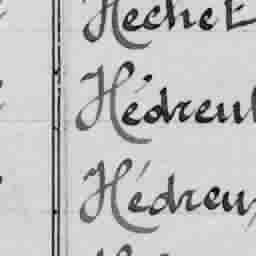 Hechet
Hédreul
Hédreu